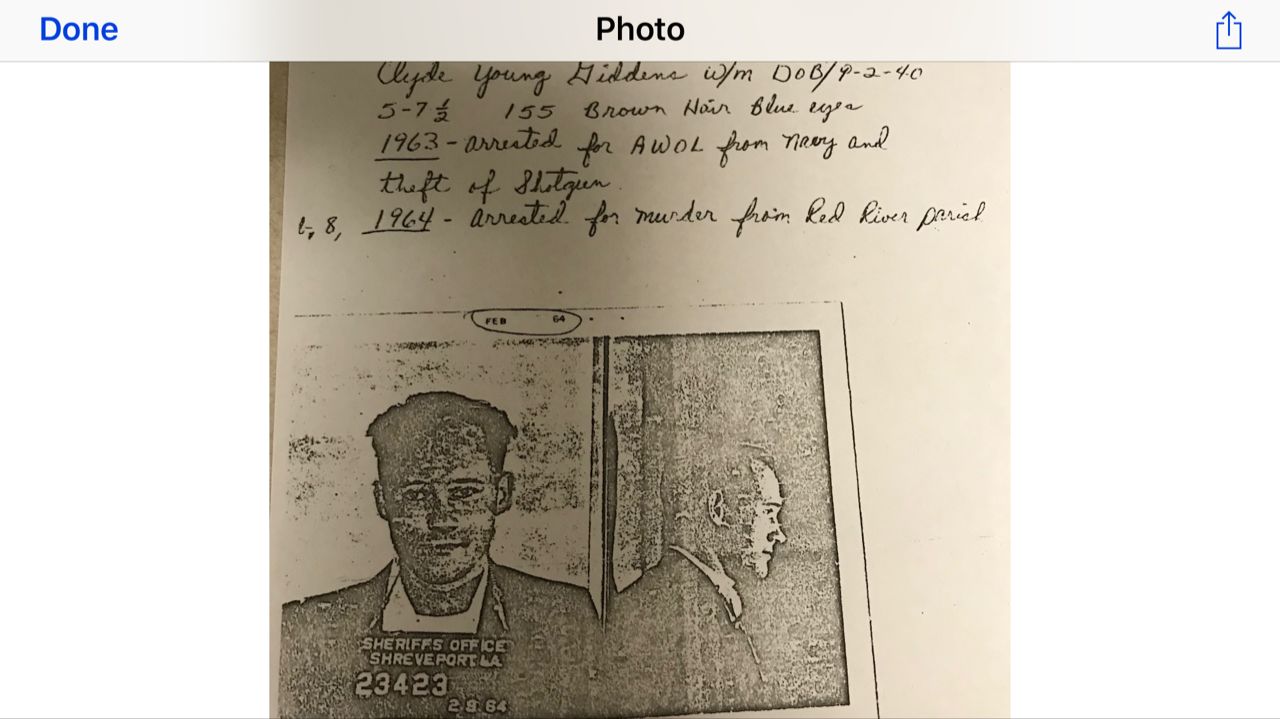 Done
Photo
Clyde Young Giddens w/m DOB/9-2-40
5-7 ½ 155 Brown Hair Blue eyes
1963 - arrested for AWOL from Navy and
theft of Shotgun.
8, 1964 - arrested for murder from Red River parish
FEB 64
SHERIFFS OFFICE
SHREVEPORT LA
23423
2 8 64